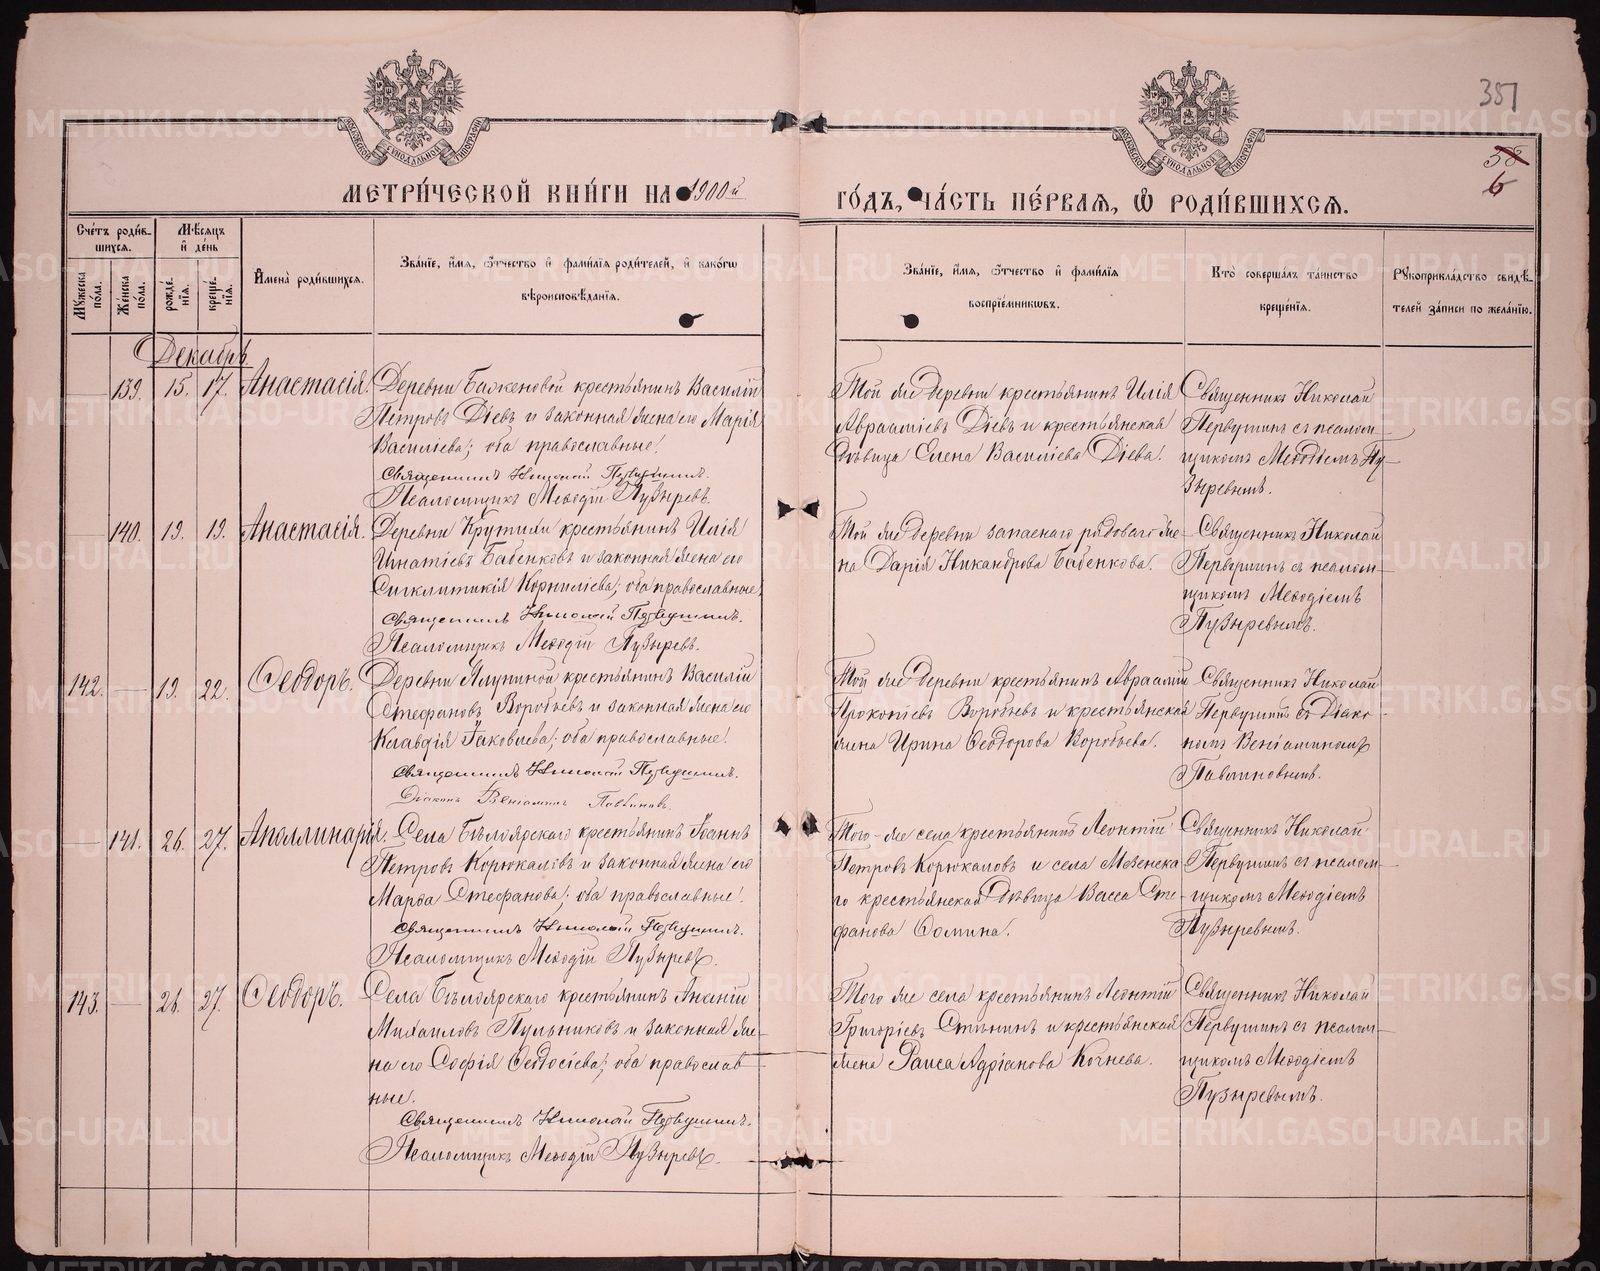 351
58
6
МЕТРИ́ЧЕСКОЙ КНИ́ГИ НА 1900й
ГО́ДЪ, ЧА́СТЬ ПЕ́РВАѦ, Ѡ҆ РОДИ́ВШИХСѦ.
Сче́тъ роди́в-
шихсѧ.
Мѣ́сѧцъ
и҆ де́нь
И҆мена̀ роди́вшихсѧ.
Зва́нїе, и҆́мѧ, ѻ҆́тчество и҆ фами́лїѧ роди́телей, и҆ како́гѡ
вѣроисповѣ́данїѧ.
Мꙋ́жеска
по́ла.
Же́нска
по́ла.
рожде́-
нїѧ.
креще́-
нїѧ.
Зва́нїе, и҆́мѧ, ѻ҆́тчество и҆ фами́лїѧ
воспрїе́мникѡвъ.
Кто̀ соверша́лъ та́инство
креще́нїѧ.
Рꙋкоприкла́дство свидѣ́-
телей за́писи по жела́нїю.
Декабрь
139. 15. 17. Анастасія. Деревни Баженовой крестьянинъ Василій
Петровъ Діевъ и законная жена его Марія
Василіева; оба православные.
Священникъ Николай Первушинъ.
Псаломщикъ Меѳодій Пузыревъ.
Той же деревни крестьянинъ Илія
Авраамієвъ Діевъ и крестьянская
дѣвица Елена Василіева Діева.
Священникъ Николай
Первушинъ съ псалом-
щикомъ Меѳодіемъ Пу-
зыревымъ.
140. 19. 19. Анастасія. Деревни Крутихи крестьянинъ Илія
Игнатіевъ Бабенковъ и законная жена его
Сигклитикія Корниліева; оба православные.
Священникъ Николай Первушинъ.
Псаломщикъ Меѳодій Пузыревъ.
Той же деревни запаснаго рядоваго же-
на Дарія Никандрова Бабенкова.
Священникъ Николай
Первушинъ съ псалом-
щикомъ Меѳодіемъ
Пузыревымъ.
142. 19. 22. Ѳеодоръ. Деревни Ялуниной крестьянинъ Василій
Стефановъ Воробьевъ и законная жена его
Клавдія Іаковлева; оба православные.
Священникъ Николай Первушинъ.
Діаконъ Веніаминъ Павлиновъ.
Той же деревни крестьянинъ Авраамій
Прокопіевъ Воробьевъ и крестьянская
жена Ирина Ѳеодорова Воробьева.
Священникъ Николай
Первушинъ съ Діако-
номъ Веніаминомъ
Павлиновымъ.
141. 26. 27. Аполлинарія. Села Бѣлоярскаго крестьянинъ Іоаннъ
Петровъ Корюкаловъ и законная жена его
Марѳа Стефанова; оба православные.
Священникъ Николай Первушинъ.
Псаломщикъ Меѳодій Пузыревъ.
Того-же села крестьянинъ Леонтій
Петровъ Корюкаловъ и села Мезенска
го крестьянская дѣвица Васса Сте-
фанова Ѳомина.
Священникъ Николай
Первушинъ съ псалом-
щикомъ Меѳодіемъ
Пузыревымъ.
143. 26. 27. Ѳеодоръ. Села Бѣлоярскаго крестьянинъ Ананій
Михаиловъ Пульниковъ и законная же-
на его Софія Ѳеодосіева; оба православ-
ные.
Священникъ Николай Первушинъ.
Псаломщикъ Меѳодій Пузыревъ.
Того же села крестьянинъ Леонтій
Григоріевъ Стинин и крестьянская
жена Раиса Адріанова Кочнева.
Священникъ Николай
Первушинъ съ псалом-
щикомъ Меѳодіемъ
Пузыревымъ.